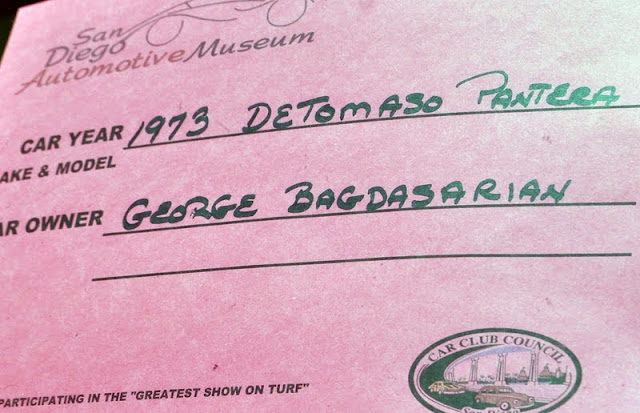 San
Diego
Automotive Museum
CAR YEAR 1973 DETOMASO PANTERA
AKE & MODEL
AR OWNER GEORGE BAGDASARIAN
PARTICIPATING IN THE "GREATEST SHOW ON TURF"
CAR CLUB COUNCIL
San Diego